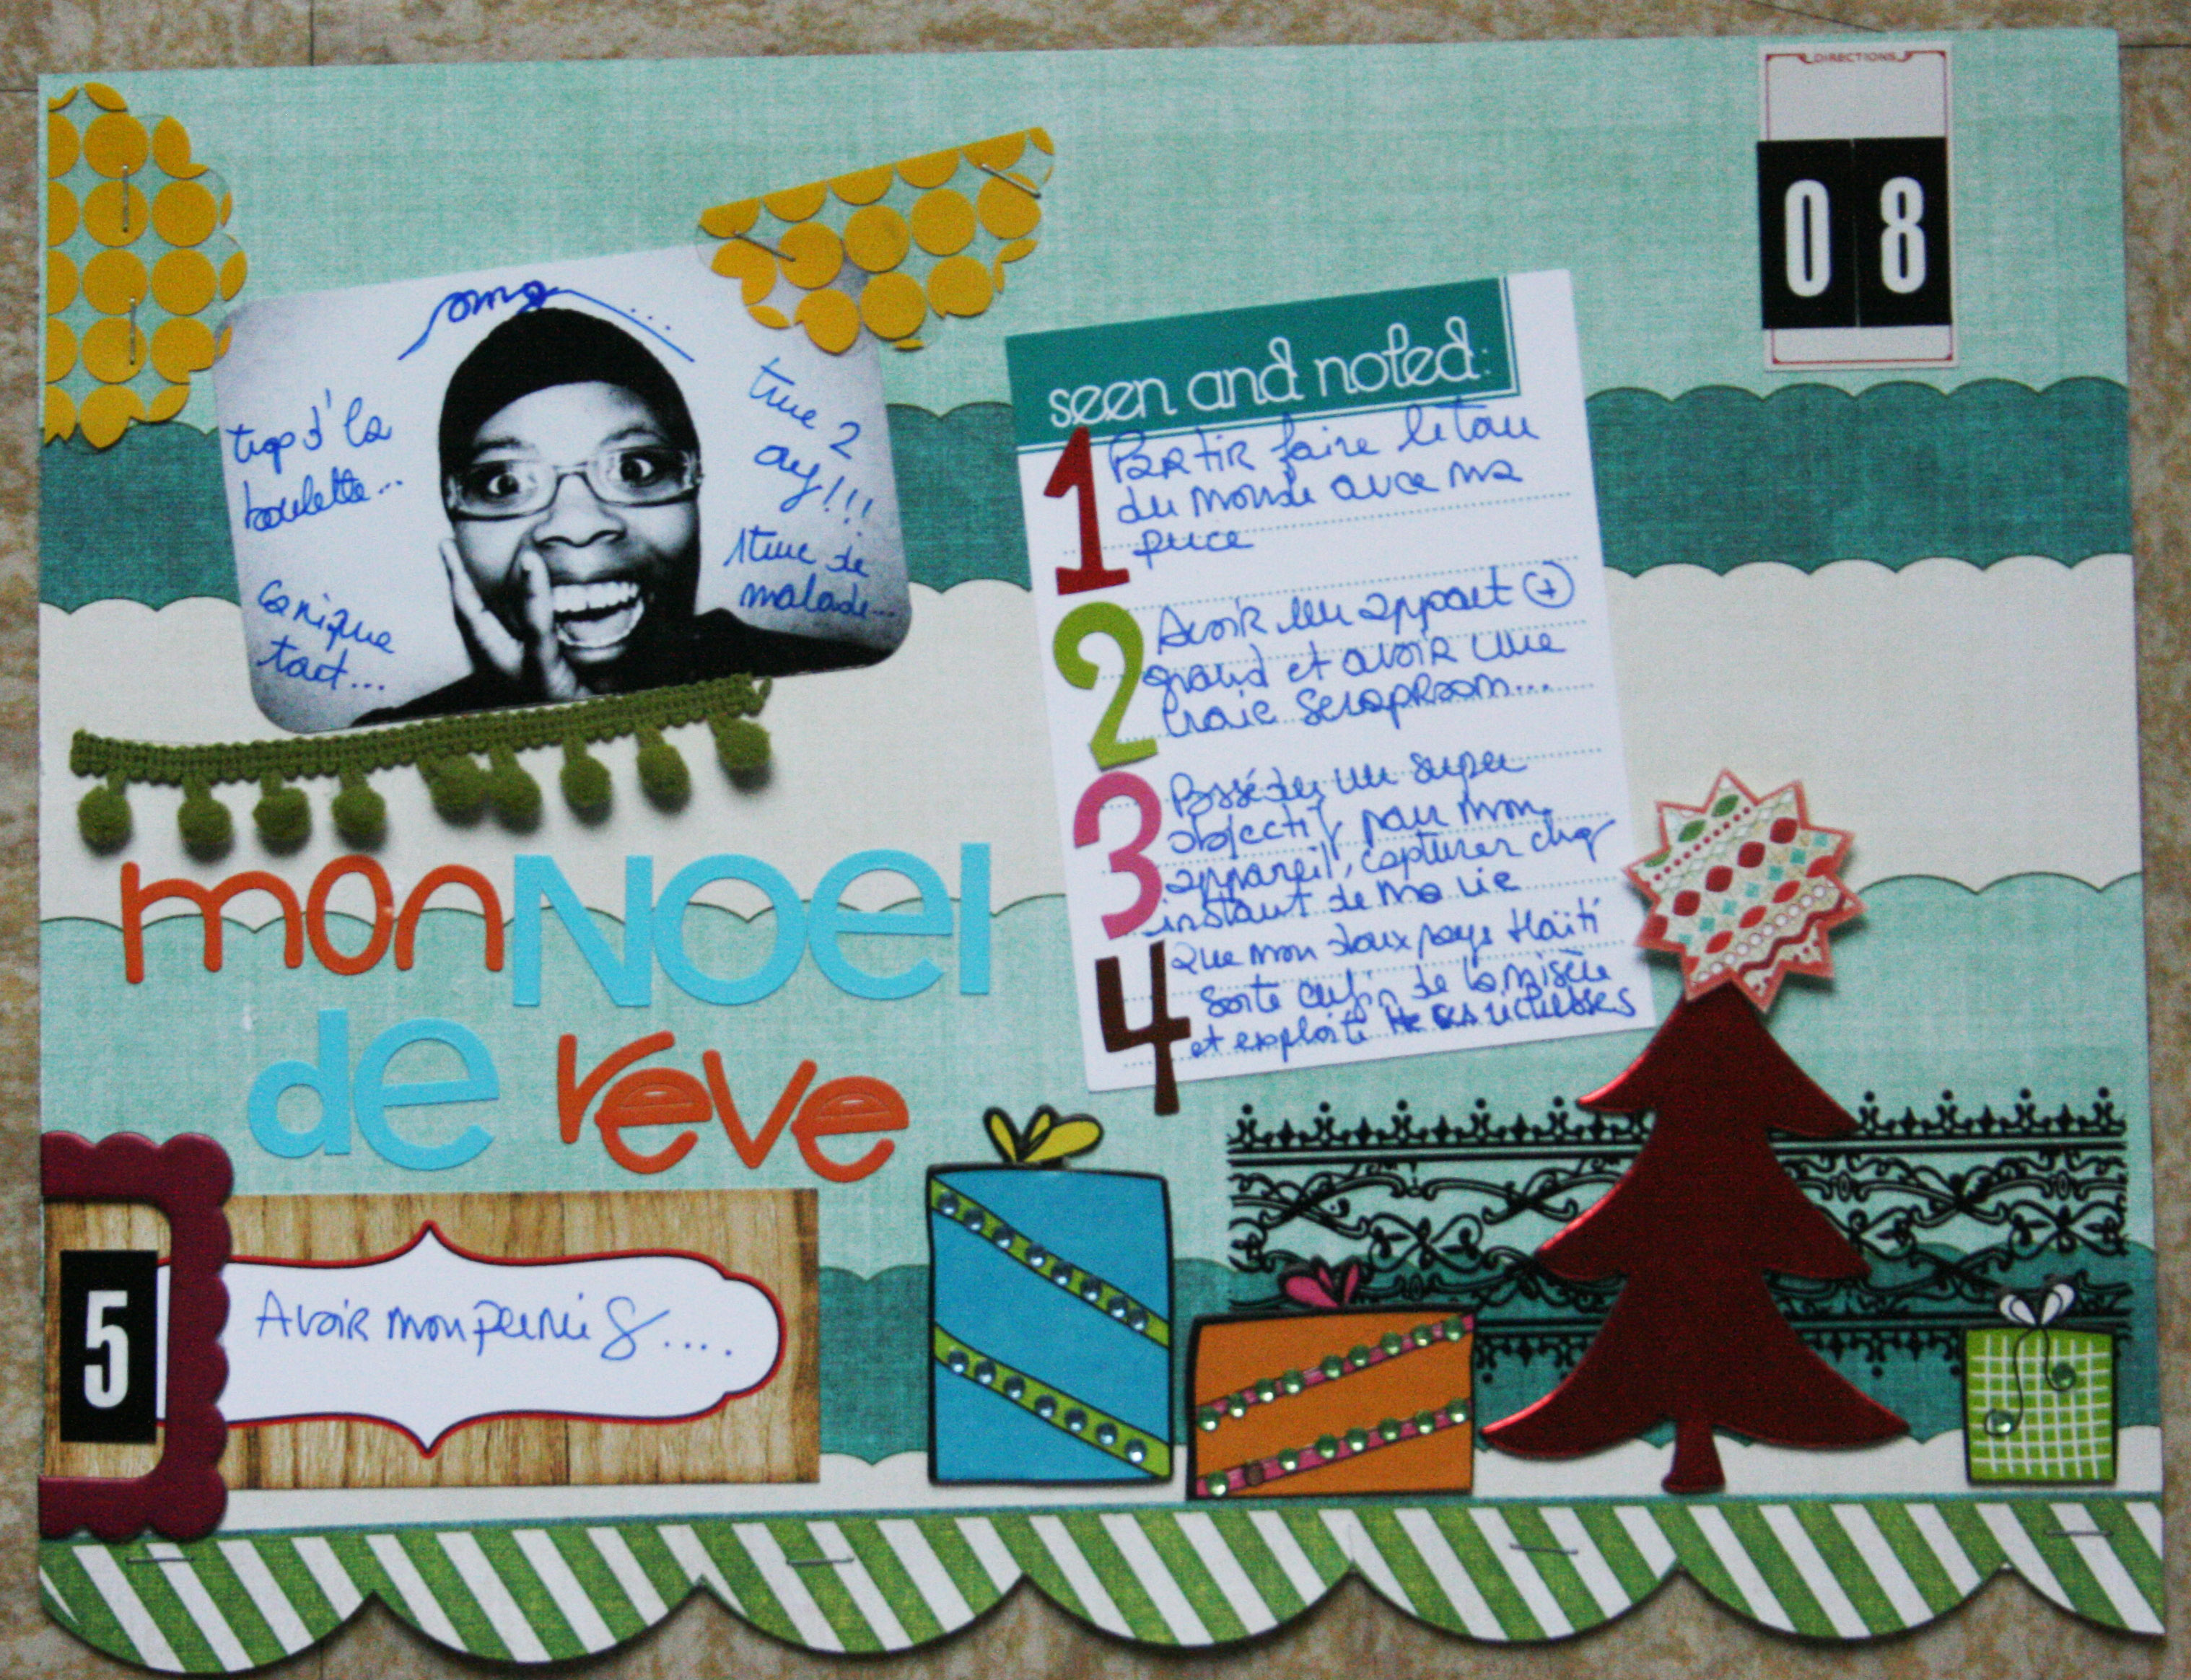 DIRECTIONS
08
omg...
trop d' la
boulette...
ca nique
tout...
true 2
ouf!!!
1 true de
malade...
seen and noted:
1 Partir faire le tour
du monde avec ma
puce
2 Avoir un appart (+)
grand et avoir une
vraie ScrapRoom...
3 Posséder un super
objectif pour mon
appareil, capturer chq
instant de ma vie
4 Que mon doux pays Haïti
sorte enfin de la misère
et exploite ses richesses
mon Noel
de reve
5 Avoir mon permis....